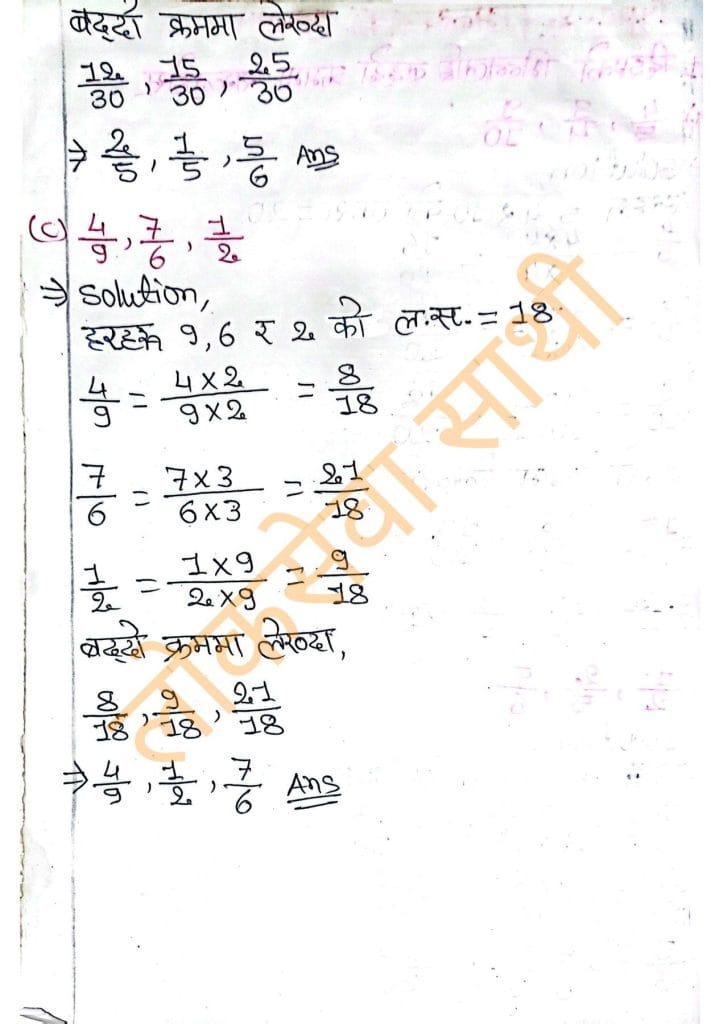 बढ्दो क्रममा लेख्दा
12/30, 15/30, 25/30
⇒ 2/5, 1/5, 5/6 Ans
(c) 4/9, 7/6, 1/2
⇒ solution,
हरहरू 9, 6 र 2 को ल.स. = 18
4/9 = 4×2/9×2 = 8/18
7/6 = 7×3/6×3 = 21/18
1/2 = 1×9/2×9 = 9/18
बढ्दो क्रममा लेख्दा,
8/18, 9/18, 21/18
⇒ 4/9, 1/2, 7/6 Ans
लोकसेवा साथी